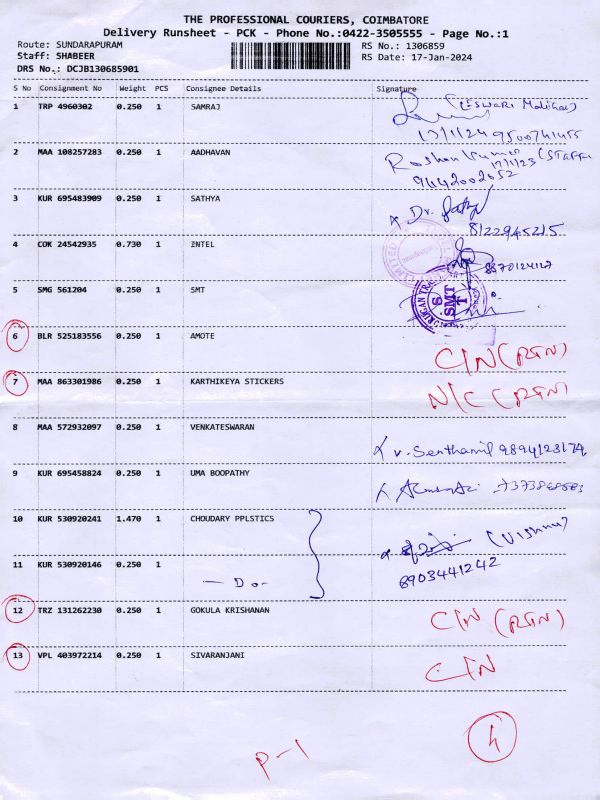 THE PROFESSIONAL COURIERS, COIMBATORE
Delivery Runsheet - PCK - Phone No.:0422-3505555 - Page No.:1
Route: SUNDARAPURAM RS No.: 1306859
Staff: SHABEER RS Date: 17-Jan-2024
DRS No.: DCJB130685901
S No Consignment No Weight PCS Consignee Details Signature
1 TRP 4960302 0.250 1 SAMRAJ (ESWARI
17/1/24 9500741455
2 MAA 108257283 0.250 1 AADHAVAN Roshan Kumar (STAFF)
17/1/23
9442002652
3 KUR 695483909 0.250 1 SATHYA Dr.
8122945215
4 COK 24542935 0.730 1 INTEL 8870124127
5 SMG 561204 0.250 1 SMT
SMT
6 BLR 525183556 0.250 1 AMOTE C/N (RTN)
7 MAA 863301986 0.250 1 KARTHIKEYA STICKERS N/C (RTN)
8 MAA 572932097 0.250 1 VENKATESWARAN
V. Senthamil
9 KUR 695458824 0.250 1 UMA BOOPATHY
10 KUR 530920241 1.470 1 CHOUDARY PPLSTICS (Vishnu)
11 KUR 530920146 0.250 1 8903441242
— Do -
12 TRZ 131262230 0.250 1 GOKULA KRISHANAN C/N (RTN)
13 VPL 403972214 0.250 1 SIVARANJANI C/N
P-1 4